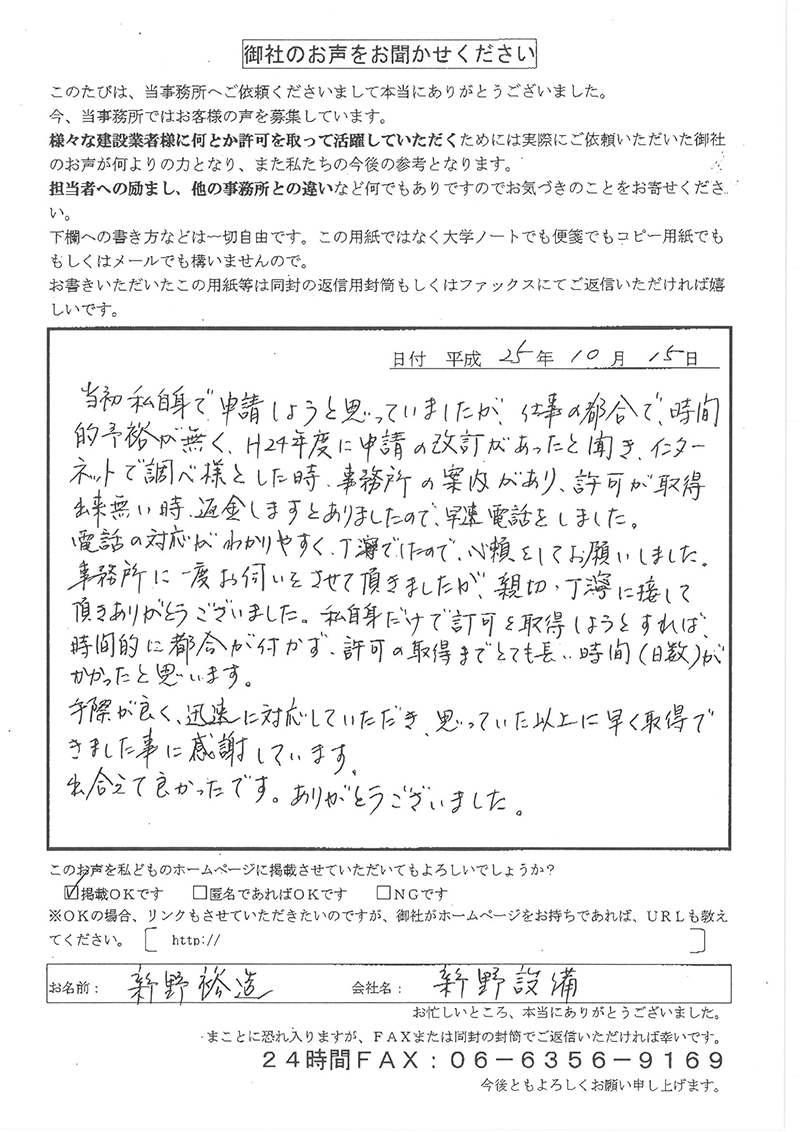 御社のお声をお聞かせください
このたびは、当事務所へご依頼くださいまして本当にありがとうございました。
今、当事務所ではお客様の声を募集しています。
様々な建設業者様に何とか許可を取って活躍していただくためには実際にご依頼いただいた御社
のお声が何よりの力となり、また私たちの今後の参考となります。
担当者への励まし、他の事務所との違いなど何でもありですのでお気づきのことをお寄せくださ
い。
下欄への書き方などは一切自由です。この用紙ではなく大学ノートでも便箋でもコピー用紙でも
もしくはメールでも構いませんので。
お書きいただいたこの用紙等は同封の返信用封筒もしくはファックスにてご返信いただければ嬉
しいです。
日付 平成 25 年 10 月 15 日
当初私自身で申請しようと思っていましたが、仕事の都合で、時間
的予裕が無く、H24年度に申請の改訂があったと聞き、インター
ネットで調べ様とした時、事務所の案内があり、許可が取得
出来無い時、返金しますとありましたので、早速電話をしました。
電話の対応がわかりやすく、丁寧でしたので、心頼をしてお願いしました。
事務所に一度お伺いをさせて頂きましたが、親切・丁寧に接して
頂きありがとうございました。私自身だけで許可を取得しようとすれば、
時間的に都合が付かず、許可の取得までとても長い時間(日数)が
かかったと思います。
手際が良く、迅速に対応していただき、思っていた以上に早く取得で
きました事に感謝しています。
出合えて良かったです。ありがとうございました。
このお声を私どものホームページに掲載させていただいてもよろしいでしょうか？
☑掲載OKです □匿名であればOKです □NGです
※OKの場合、リンクもさせていただきたいのですが、御社がホームページをお持ちであれば、URLも教え
てください。 [ http:// ]
お名前： 新野裕造 会社名： 新野設備
お忙しいところ、本当にありがとうございました。
まことに恐れ入りますが、FAXまたは同封の封筒でご返信いただければ幸いです。
24時間FAX：06-6356-9169
今後ともよろしくお願い申し上げます。